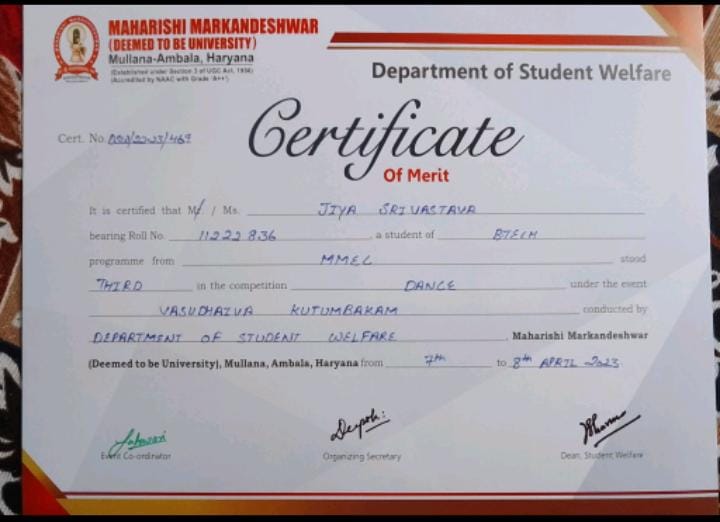 MAHARISHI MARKANDESHWAR
(DEEMED TO BE UNIVERSITY)
Mullana-Ambala, Haryana
(Established under Section 3 of UGC Act, 1956)
(Accredited by NAAC with Grade 'A++')
Department of Student Welfare
Certificate
Cert. No. DSW/22-23/469
Of Merit
It is certified that Mr / Ms. JIYA SRIVASTAVA
bearing Roll No. 11222836 a student of BTECH
programme from MMEC stood
THIRD in the competition DANCE under the event
VASUDHAIVA KUTUMBAKAM conducted by
DEPARTMENT OF STUDENT WELFARE, Maharishi Markandeshwar
(Deemed to be University), Mullana, Ambala, Haryana from 7th to 8th APRIL 2023.
Event Co-ordinator
Organizing Secretary
Dean, Student Welfare